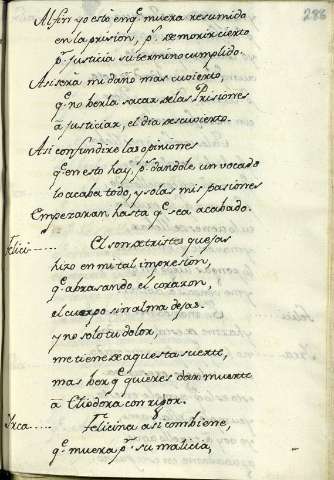 286
Al fin yo estoi en q̃ muera resumido
en la prision, p.ʳ q̃ e morir cierto
p.ʳ justicia su termino cumplido.
Asi será mi daño mas cuvierto,
q̃ no berla sacar de las Prisiones
â justiciar, el dia descuvierto.
Asi confundire las opiniones
q̃ en esto hay, p.ʳ dandole un vocado
lo acaba todo, y solas mis pasiones
Empezaran hasta q̃ sea acabado.
Felici..... El son de tristes quejas
hizo en mi tal impresion,
q̃ abrasando el corazon,
el cuerpo sin alma dejas.
y no solo tu dolor,
me tiene de aquesta suerte,
mas ber q̃ quieres dar muerte
â Cliodora con rigor.
Yrca..... Felicina asi combiene,
q̃ muera p.ʳ su malicia,